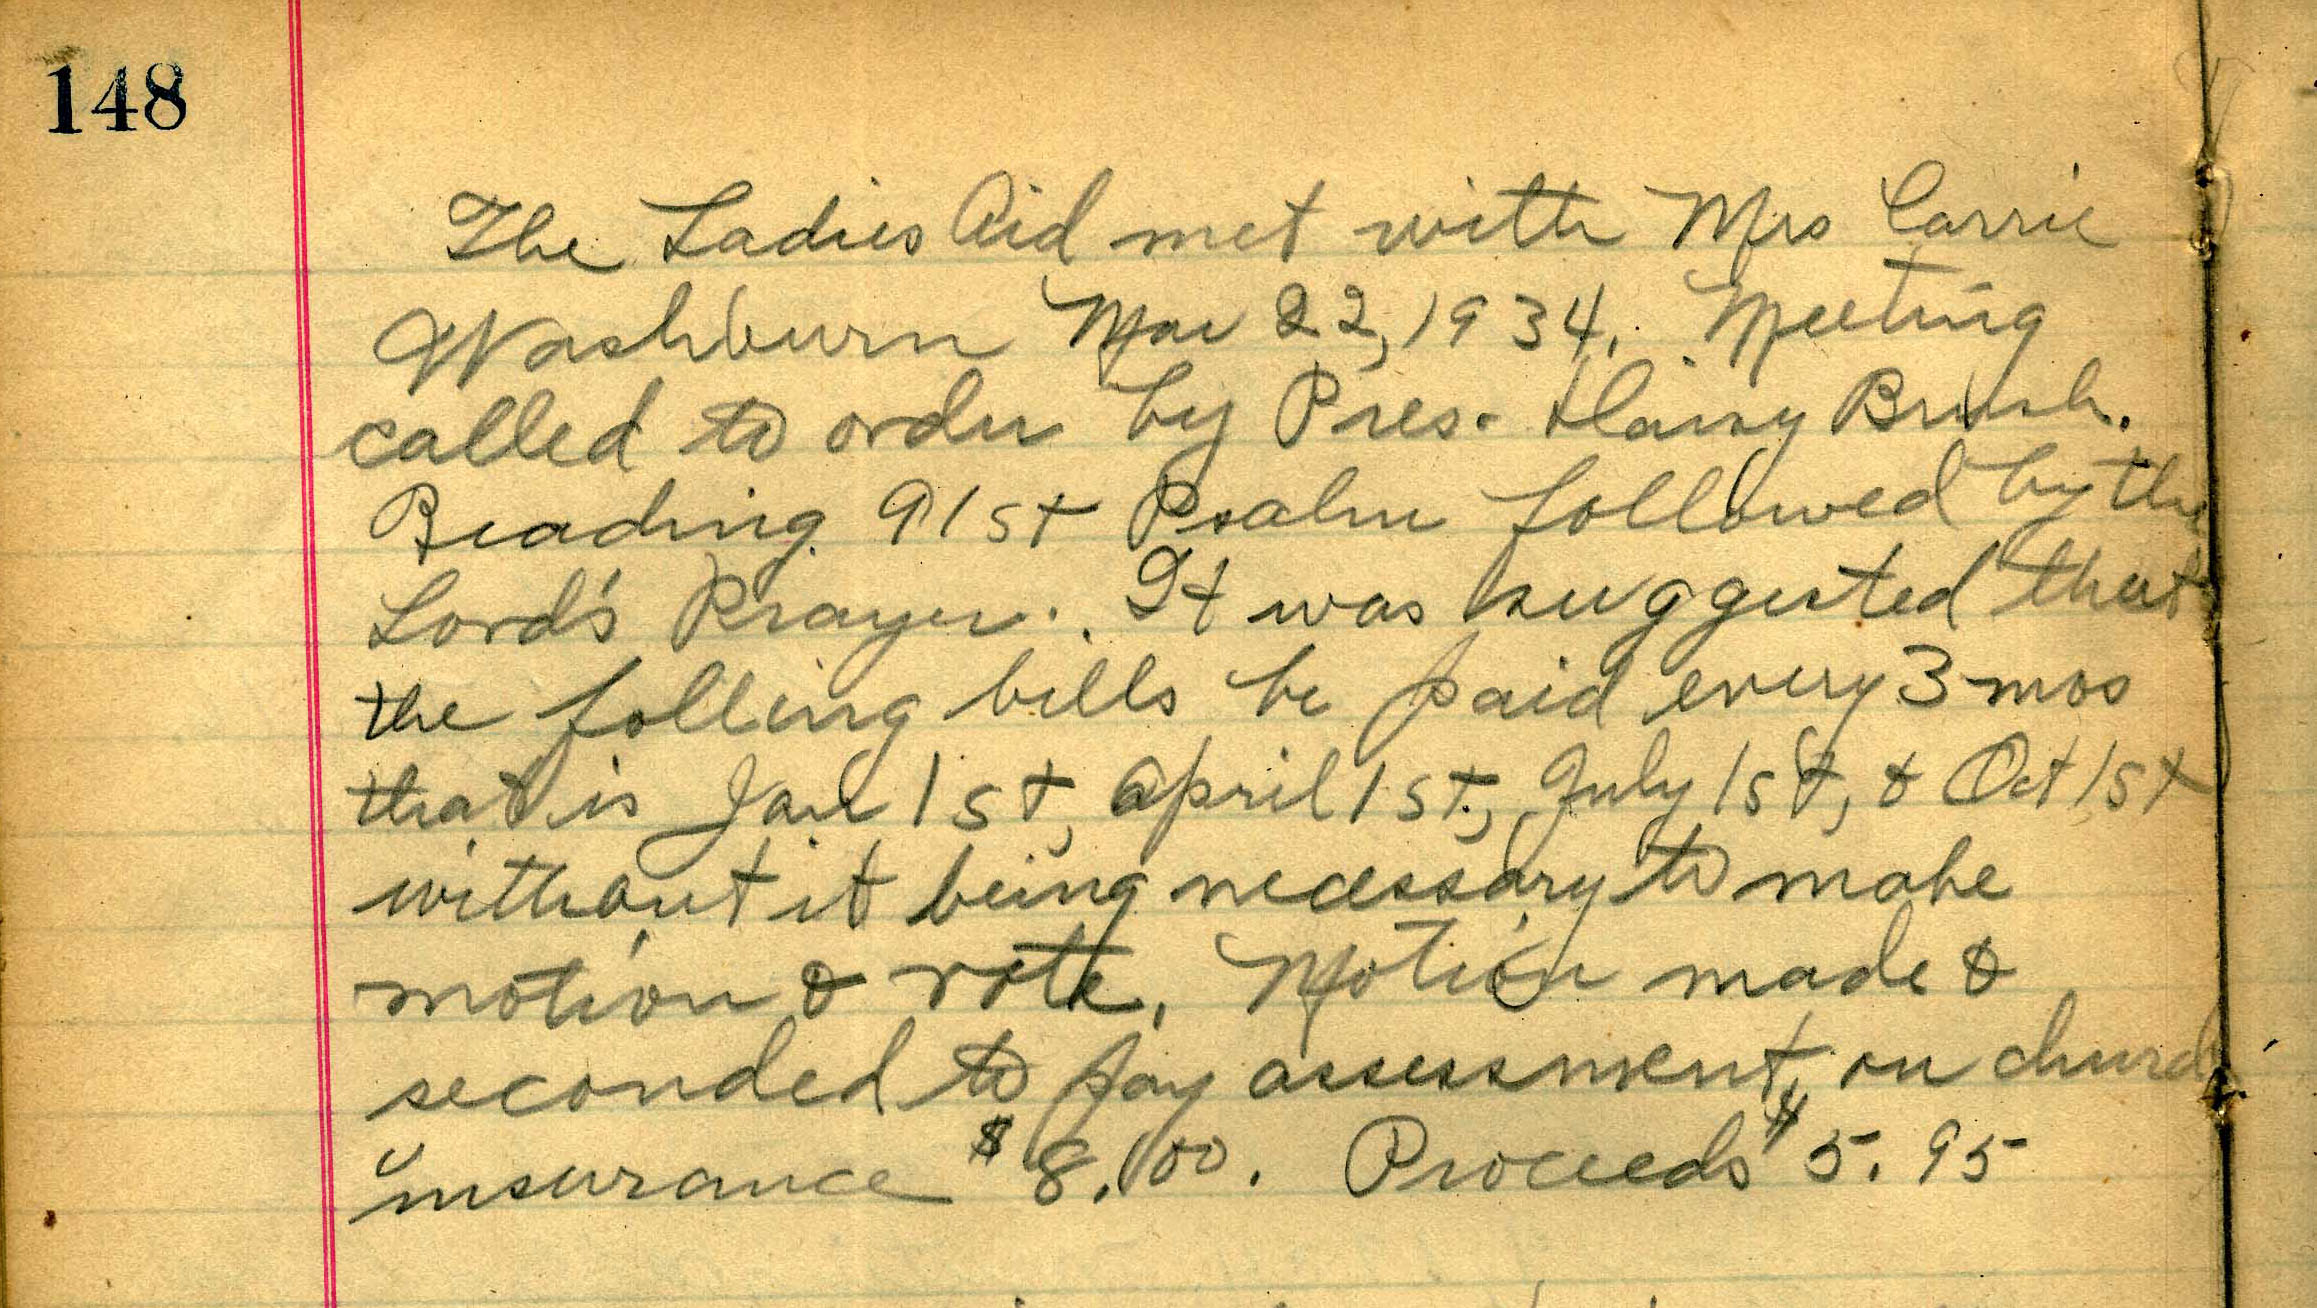 148
The Ladies Aid met with Mrs Carrie
Washburn Mar 22, 1934. Meeting
called to order by Pres. Daisy Brush.
Reading 91st Psalm followed by the
Lord's Prayer. It was suggested that
the folling bills be paid every 3 mos
that is Jan 1st, April 1st, July 1st, & Oct 1st
without it being necessary to make
motion & vote. Motion made &
seconded to pay assessment on church
insurance $8.00. Proceeds $5.95